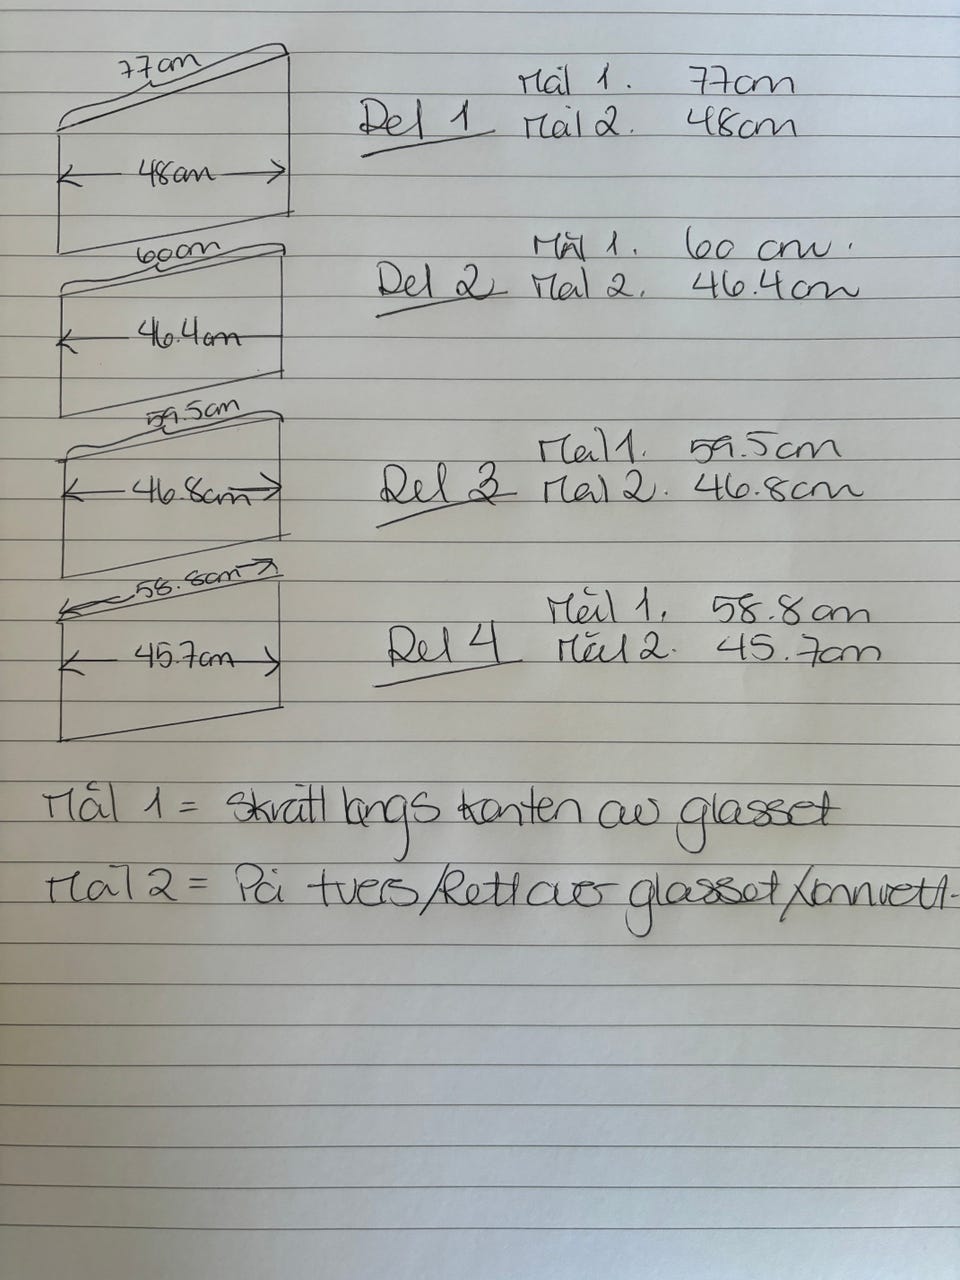 77cm
Mål 1. 77cm
Del 1 Mål 2. 48cm
48cm
60cm
Mål 1. 60 cm.
Del 2 Mål 2. 46.4cm
46.4cm
59.5cm
Mål 1. 59.5cm
46.8cm
Del 3 Mål 2. 46.8cm
58.8cm
Mål 1. 58.8cm
45.7cm
Del 4 Mål 2. 45.7cm
Mål 1 = Skrått langs kanten av glasset
Mål 2 = På tvers/Rett over glasset/